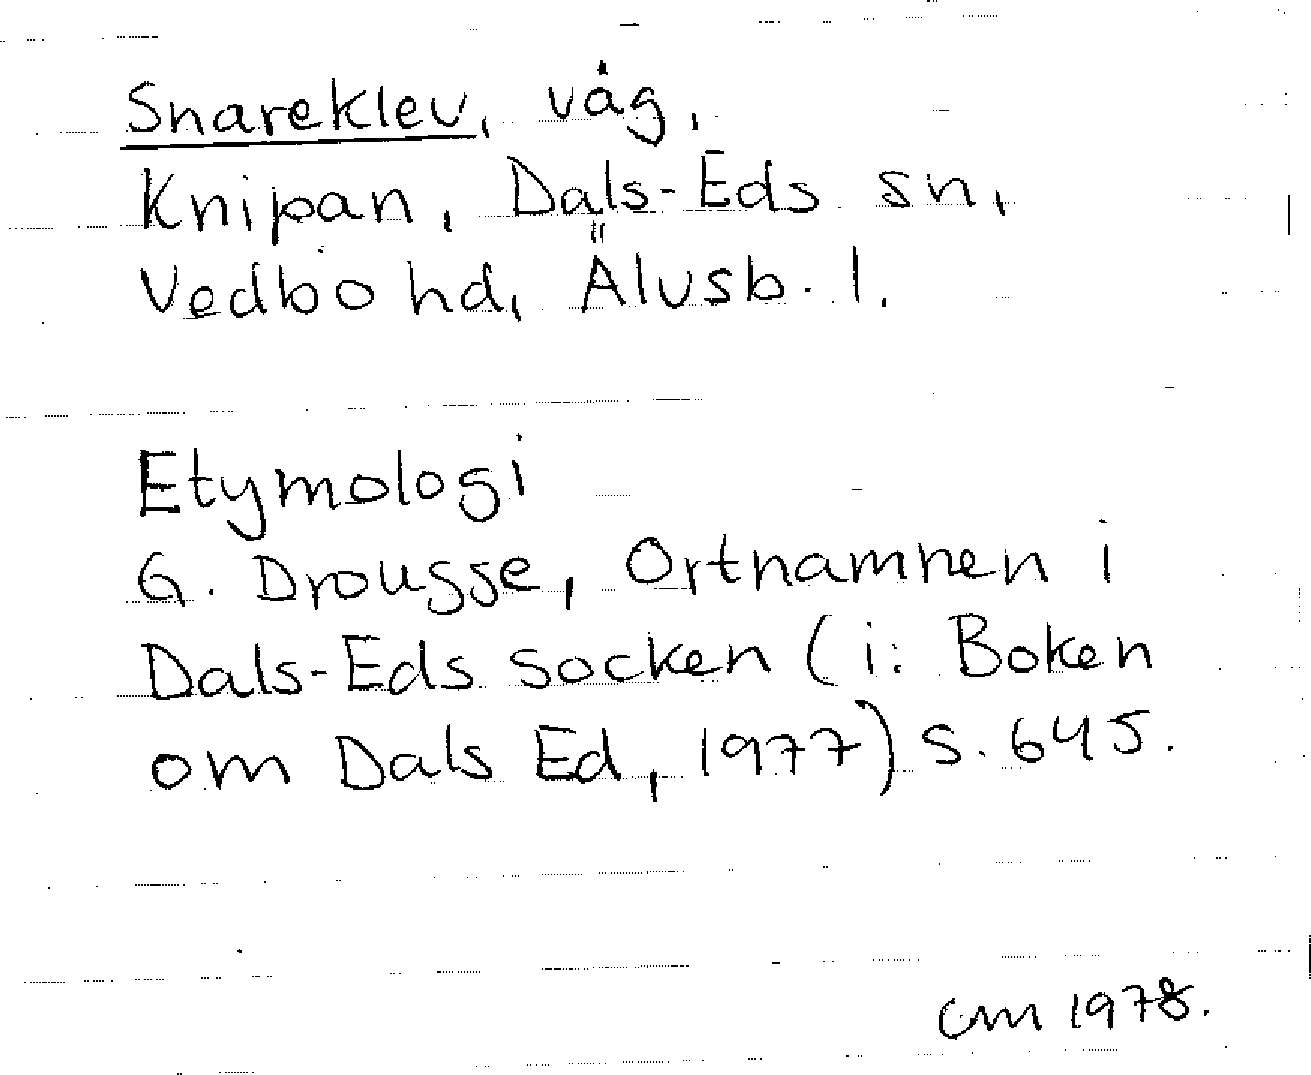 Snareklev, våg,
Knipan, Dals-Eds sn,
Vedbo hd, Älvsb. l.
Etymologi
G. Drougge, Ortnamnen i
Dals-Eds socken (i: Boken
om Dals Ed, 1977) s. 645.
CM 1978.